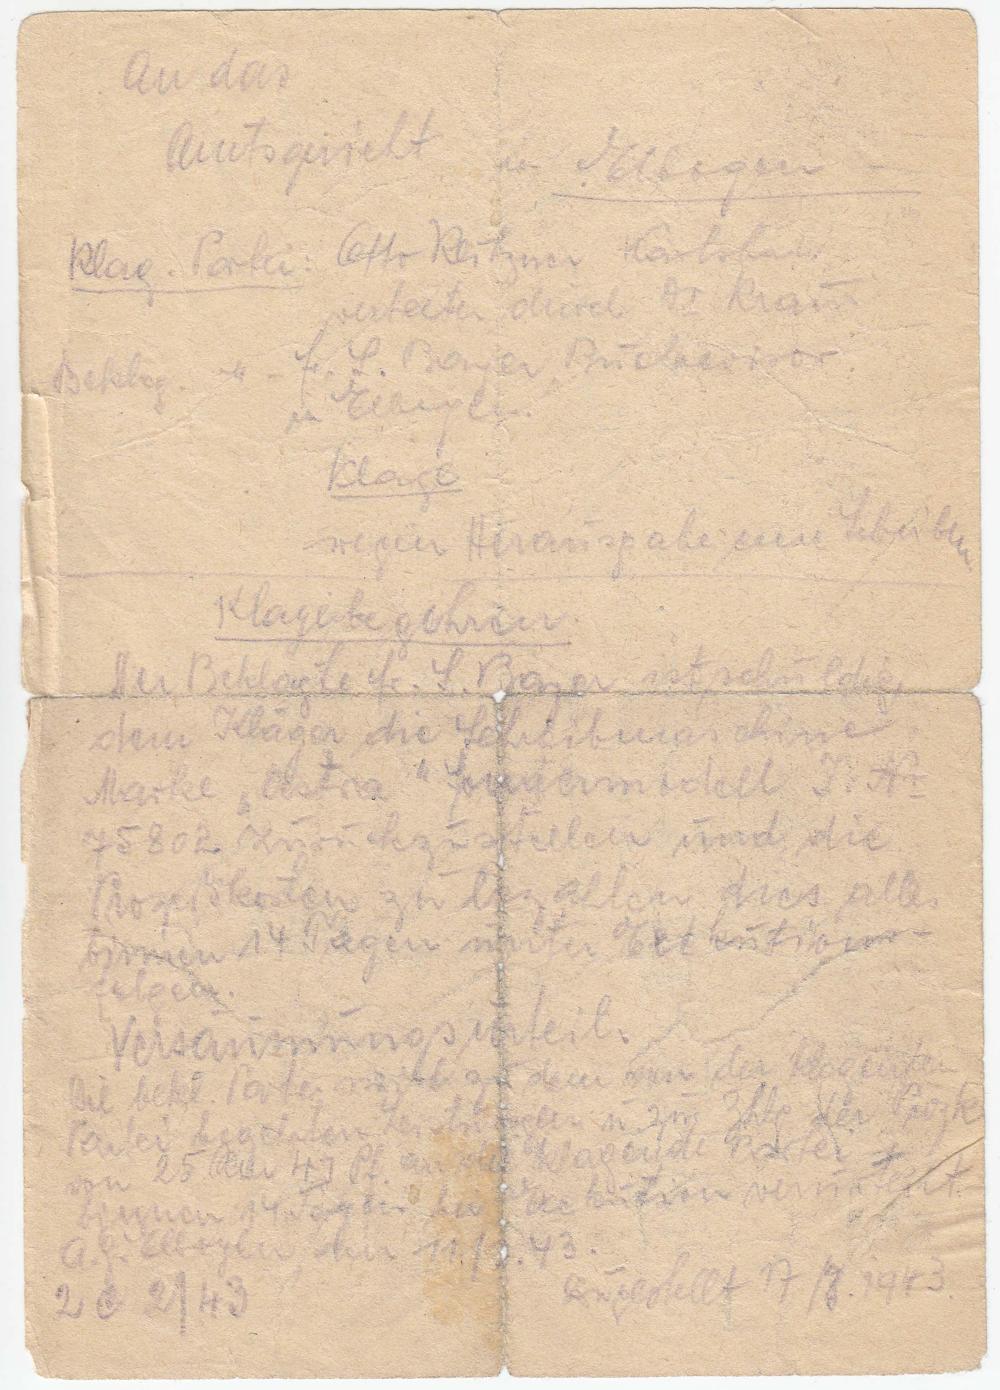 An das
Amtsgericht in Elbogen
Klag. Partei: Otto Karlsbad
vertreten durch Dr Kraus
Beklag. " - Fr. L. Bayer, Buchrevisor
in Elbogen.
Klage
wegen Herausgabe einer Schreibm
Klagebegehren.
Der Beklagte Fr. L. Bayer ist schuldig,
dem Kläger die Schreibmaschine
Marke "Astra" J. Nr
75802 zurückzustellen und die
Prozeßkosten zu bezahlen dies alles
binnen 14 Tagen unter Exekutions-
folgen.
Versäumnungsurteil.
Die bekl. Partei wird zu dem von der klagenden
Partei begehrten Leistungen u. zur Zhlg der Prozk
von 25 RM 47 Pf. an die klagende Partei
binnen 14 Tagen bei Exekution verurteilt.
A.G. Elbogen den 43.
2 C 2/43 zugestellt 17 1943.